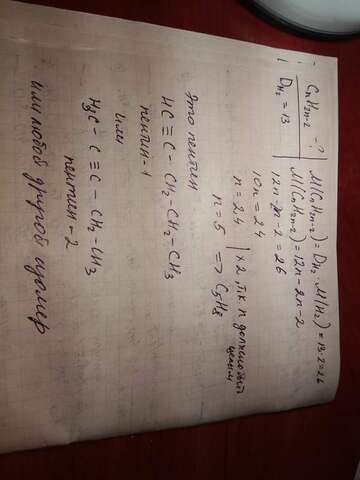 CnH2n-2 - ?
DH2 = 13
M(CnH2n-2) = DH2 · M(H2) = 13·2=26
M(CnH2n-2) = 12n-2n-2
12n-2n-2=26
10n=24
n=2,4 | ×2, т.к n должно быть целым
n=5 => C5H8
Это пентин
HC ≡ C - CH2-CH2-CH3
пентин-1
или
H3C - C ≡ C - CH2-CH3
пентин-2
или любой другой изомер